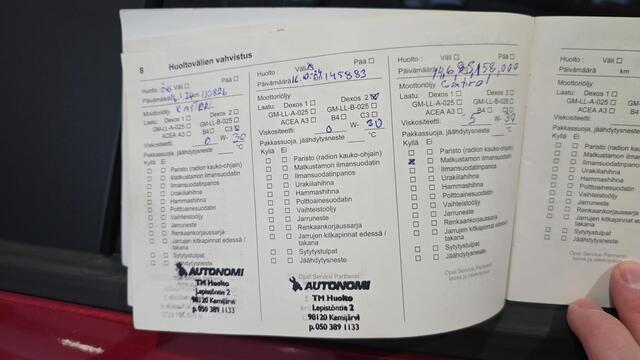 8 Huoltovälien vahvistus
Huolto: Väli ☐ Pää ☐
Päivämäärä km
Moottoriöljy
Laatu: Dexos 1 ☐ Dexos 2 ☐
GM-LL-A-025 ☐ GM-LL-B-025 ☐
ACEA A3 ☐ B4 ☐ C3
Viskositeetti: 0 W- 30
Pakkassuoja, jäähdytysneste °C
Kyllä Ei
☐ ☐ Paristo (radion kauko-ohjain)
☐ ☐ Matkustamon ilmansuodatin
☐ ☐ Ilmansuodatinpanos
☐ ☐ Urakiilahihna
☐ ☐ Hammashihna
☐ ☐ Polttoainesuodatin
☐ ☐ Vaihteistoöljy
☐ ☐ Jarruneste
☐ ☐ Renkaankorjaussarja
☐ ☐ Jarrujen kitkapinnat edessä / takana
☐ ☐ Sytytystulpat
☐ ☐ Jäähdytysneste
AUTONOMI
TM Huolto
Lepistöntie 2
98120 Kemijärvi
p.050 389 1133
Huolto: Väli Pää ☐
Päivämäärä km 145883
Moottoriöljy
Laatu: Dexos 1 ☐ Dexos 2
GM-LL-A-025 ☐ GM-LL-B-025 ☐
ACEA A3 ☐ B4 ☐ C3 ☐
Viskositeetti: 0 W- 30
Pakkassuoja, jäähdytysneste °C
Kyllä Ei
☐ ☐ Paristo (radion kauko-ohjain)
☐ ☐ Matkustamon ilmansuodatin
☐ ☐ Ilmansuodatinpanos
☐ ☐ Urakiilahihna
☐ ☐ Hammashihna
☐ ☐ Polttoainesuodatin
☐ ☐ Vaihteistoöljy
☐ ☐ Jarruneste
☐ ☐ Renkaankorjaussarja
☐ ☐ Jarrujen kitkapinnat edessä / takana
☐ ☐ Sytytystulpat
☐ ☐ Jäähdytysneste
Opel Service Partnerin
AUTONOMI
TM Huolto
Lepistöntie 2
98120 Kemijärvi
p.050 389 1133
Huolto: Väli ☐ Pää ☐
Päivämäärä 158,000
Moottoriöljy
Laatu: Dexos 1 ☐ Dexos 2 ☐
GM-LL-A-025 ☐ GM-LL-B-025 ☐
ACEA A3 ☐ B4 ☐ C3
Viskositeetti: 5 W- 30
Pakkassuoja, jäähdytysneste °C
Kyllä Ei
☐ ☐ Paristo (radion kauko-ohjain)
☒ ☐ Matkustamon ilmansuodatin
☐ ☐ Ilmansuodatinpanos
☐ ☐ Urakiilahihna
☐ ☐ Hammashihna
☐ ☐ Polttoainesuodatin
☐ ☐ Vaihteistoöljy
☐ ☐ Jarruneste
☐ ☐ Renkaankorjaussarja
☐ ☐ Jarrujen kitkapinnat edessä / takana
☐ ☐ Sytytystulpat
☐ ☐ Jäähdytysneste
Opel Service Partnerin
leima ja allekirjoitus
Huolto:
Päivämäärä km
Moottoriöljy
Laatu:
GM-LL-A-025
ACEA A3
Viskositeetti:
Pakkassuoja,
Kyllä Ei